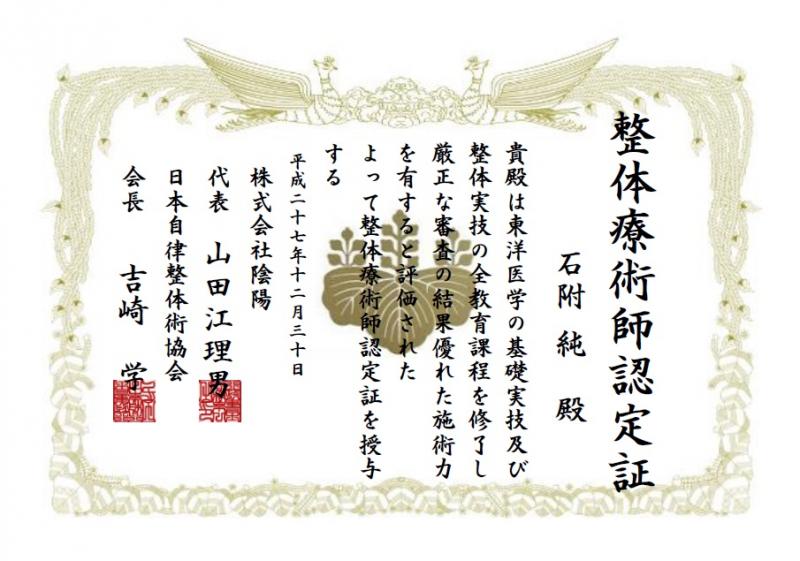 整体療術師認定証
石附 純 殿
貴殿は東洋医学の基礎実技及び
整体実技の全教育課程を修了し
厳正な審査の結果優れた施術力
を有すると評価された
よって整体療術師認定証を授与
する
平成二十七年十二月三十日
株式会社陰陽
代表 山田江理男
日本自律整体術協会
会長 吉崎 学